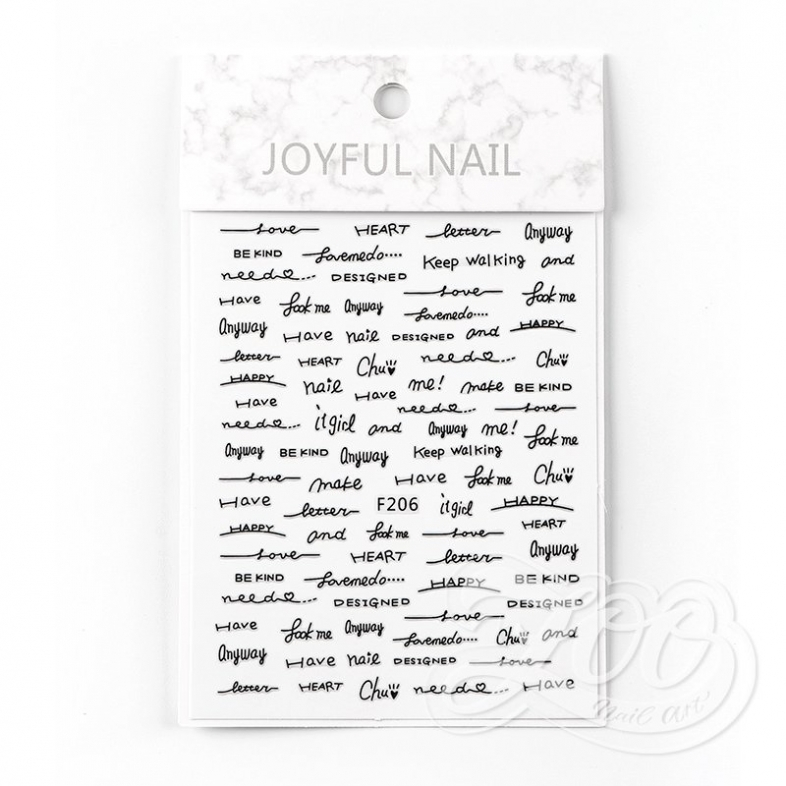 JOYFUL NAIL
Love HEART letter Anyway
BE KIND Lovemedo.... Keep walking and
need... DESIGNED
Have Look me Anyway Love Look me
Lovemedo....
Anyway Have nail DESIGNED and HAPPY
letter HEART Chu need... Chu
HAPPY nail Have me! make BE KIND
Have need... Love
need... itgirl and Anyway me! Look me
Anyway BE KIND Anyway Keep walking
Love make Have Look me Chu
Have letter F206 itgirl HAPPY
HAPPY and Look me Love HEART
Love HEART letter Anyway
BE KIND Lovemedo.... HAPPY BE KIND
need... DESIGNED Love DESIGNED
Have Look me Anyway Lovemedo.... Chu and
Anyway Have nail DESIGNED Love
letter HEART Chu need... Have
ZOO
Nail Art